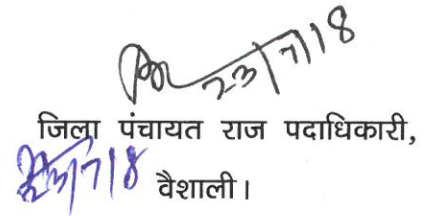 23/7/18
जिला पंचायत राज पदाधिकारी,
23/7/18
वैशाली।